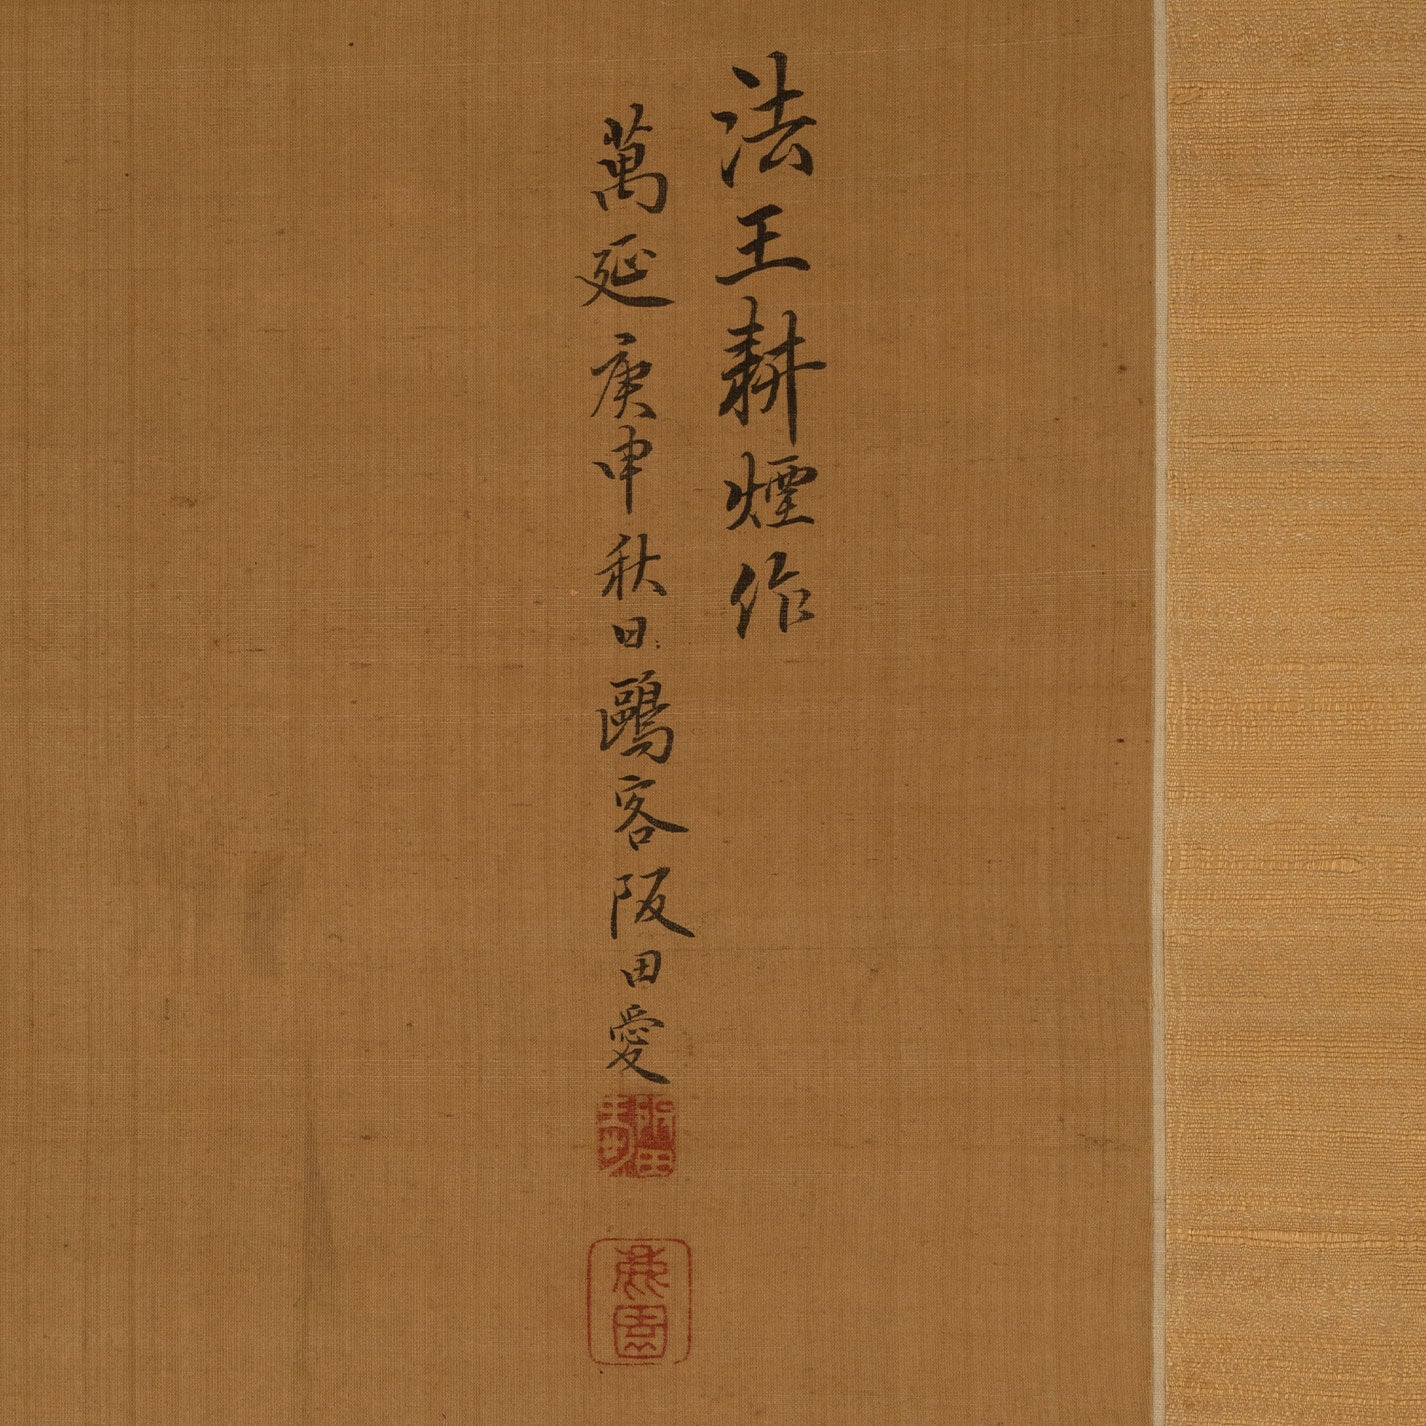 法王耕煙作
萬延庚申秋日鷗客阪田愛